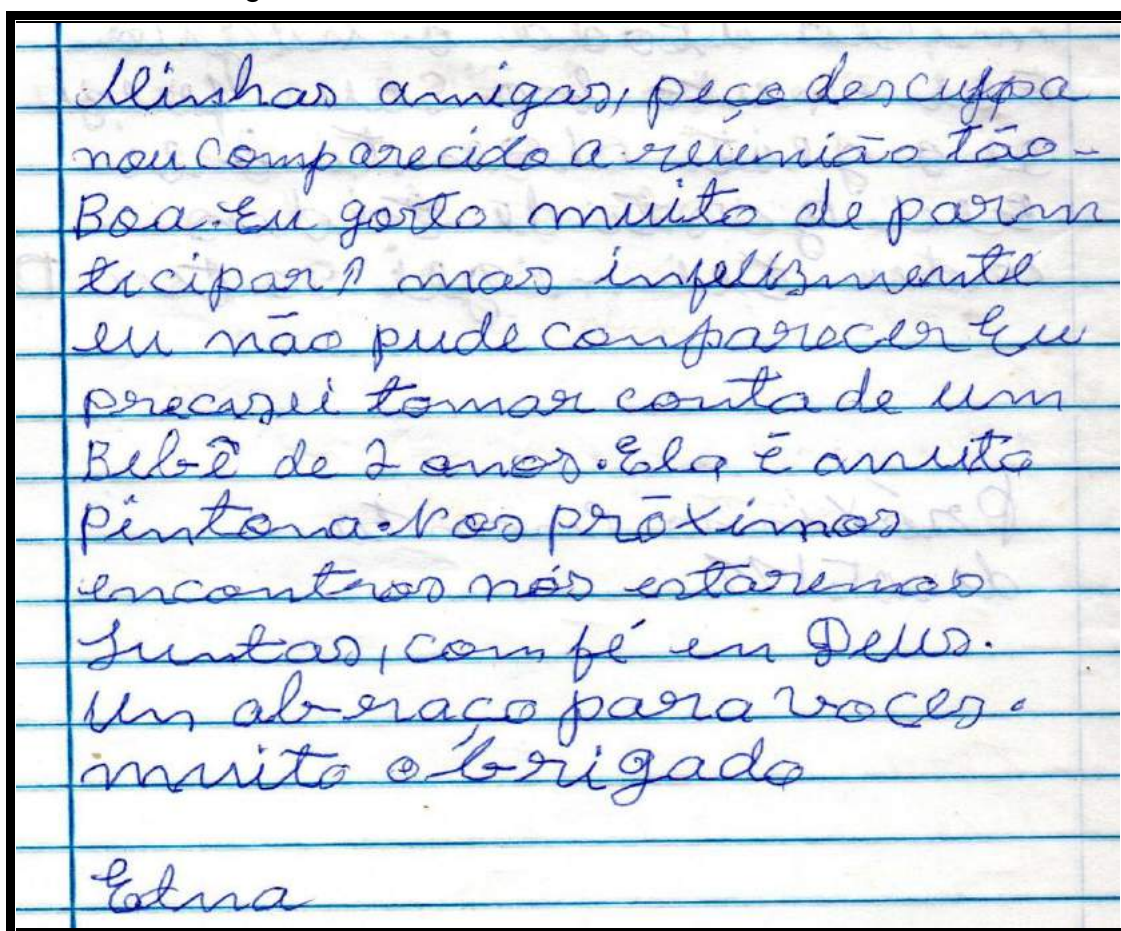 Minhas amigas, peço desculpa
nou comparecido a reunião tão-
Boa. Eu gosto muito de parm
ticipar, mas infelizmente
eu não pude comparecer Eu
precisei tomar conta de um
Bebê de 2 anos. Ela é muito
pintona. Nos próximos
encontros nós estaremos
Juntas, com fé en Deus.
Um aberaço para voces.
muito obrigado
Edna